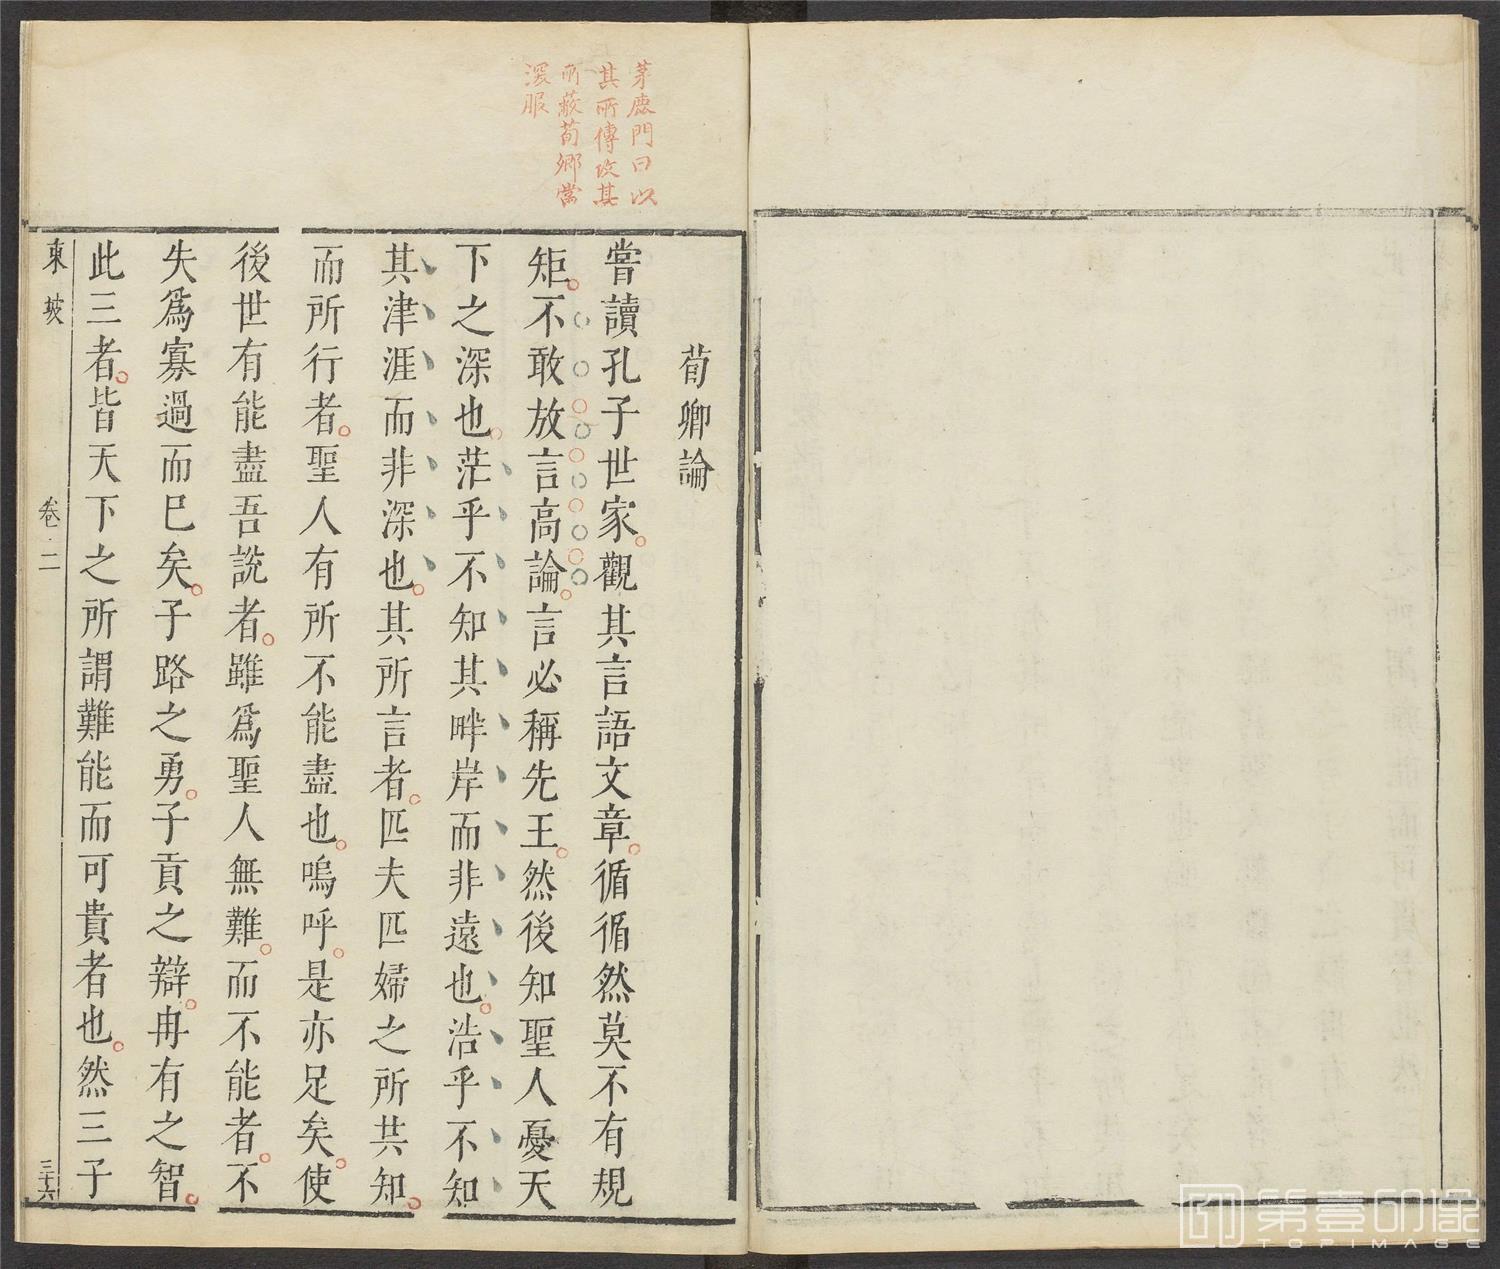 茅鹿門曰以
其所傳攻其
所蔽荀卿當
深服
荀卿論
嘗讀孔子世家觀其言語文章循循然莫不有規
矩不敢放言高論言必稱先王然後知聖人憂天
下之深也茫乎不知其畔岸而非遠也浩乎不知
其津涯而非深也其所言者匹夫匹婦之所共知
而所行者聖人有所不能盡也嗚呼是亦足矣使
後世有能盡吾說者雖爲聖人無難而不能者不
失爲寡過而已矣子路之勇子貢之辯冉有之智
此三者皆天下之所謂難能而可貴者也然三子
東坡 卷二 三十六
第壹印像
TOPIMAGE